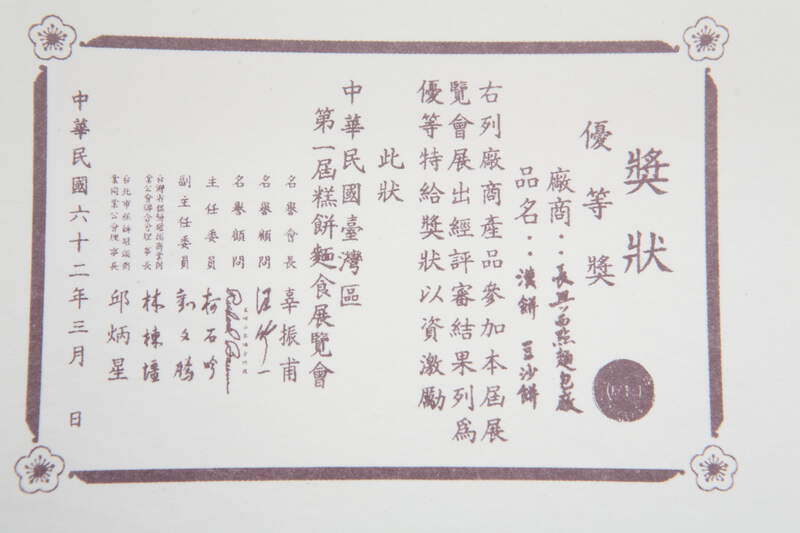 獎狀
優等獎
廠商：長興西點麵包廠
品名：漢餅 豆沙餅
右列廠商產品參加本屆展
覽會展出經評審結果列為
優等特給獎狀以資激勵
此狀
中華民國臺灣區
第一屆糕餅麵食展覽會
名譽會長 辜振甫
名譽顧問 汪竹一
名譽顧問
主任委員 柯石吟
副主任委員 劉文騰
業公會聯合會理事長 林棟
業同業公會理事長 邱炳星
中華民國六十二年三月 日